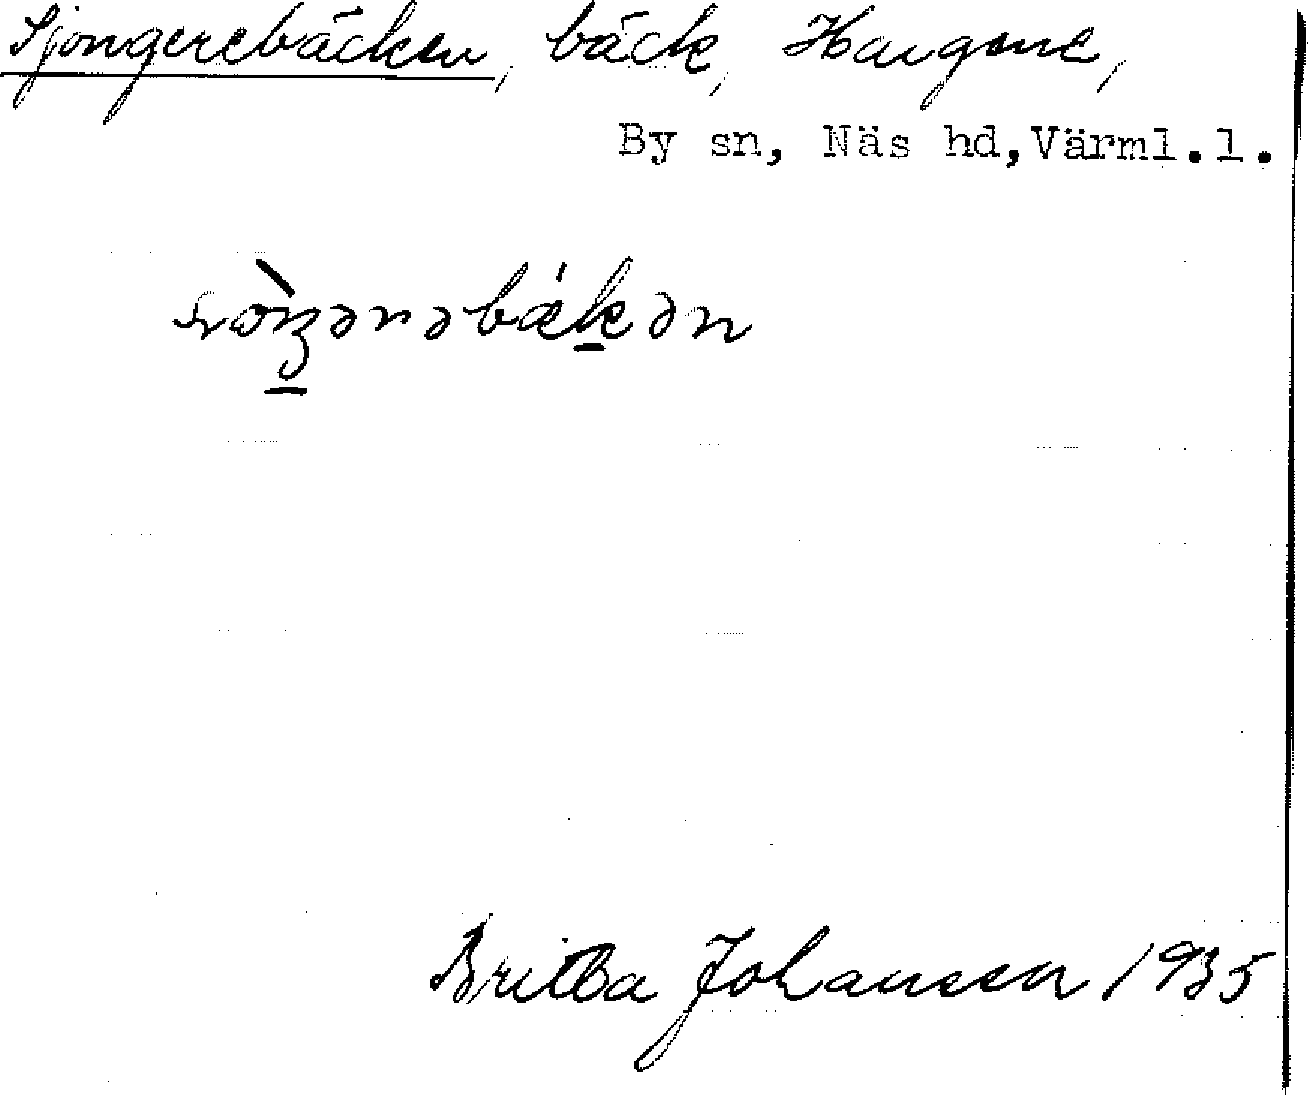 Sjöngerebäcken, bäck, Haugane,
By sn, Näs hd, Värml.l.
Britta Johansson 1935